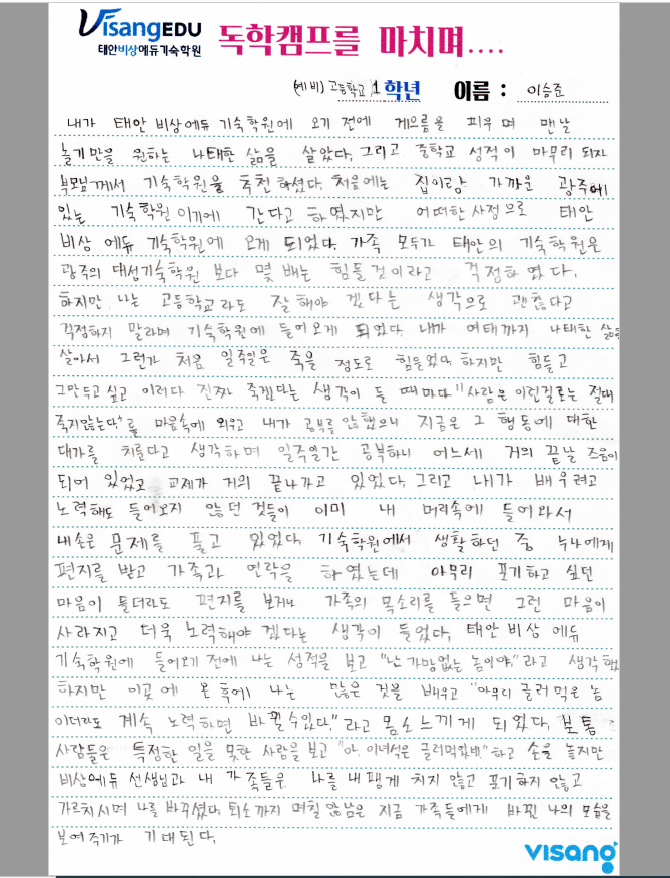 VisangEDU
태안비상에듀기숙학원
독학캠프를 마치며....
(예비) 고등학교 1 학년 이름 : 이승준
내가 태안 비상에듀 기숙학원에 오기 전에 게으름을 피우며 맨날
놀기만을 원하는 나태한 삶을 살았다. 그리고 중학교 성적이 마무리 되자
부모님께서 기숙학원을 추천하셨다. 처음에는 집이랑 가까운 광주에
있는 기숙학원이기에 간다고 하였지만 어떠한 사정으로 태안
비상 에듀 기숙학원에 오게 되었다. 가족 모두가 태안의 기숙학원은
광주의 대성기숙학원 보다 몇 배는 힘들것이라고 걱정하였다.
하지만 나는 고등학교라도 잘해야 겠다는 생각으로 괜찮다고
걱정하지 말라며 기숙학원에 들어오게 되었다. 내가 여태까지 나태한 삶을
살아서 그런가 처음 일주일은 죽을 정도로 힘들었다. 하지만 힘들고
그만두고 싶고 이러다 진짜 죽겠다는 생각이 들 때마다 "사람은 이런걸로는 절대
죽지않는다."를 마음속에 외우고 내가 공부를 안했으니 지금은 그 행동에 대한
대가를 치룬다고 생각하며 일주일간 공부하니 어느세 거의 끝날 즈음이
되어 있었고 교제가 거의 끝나가고 있었다. 그리고 내가 배우려고
노력해도 들어오지 않던 것들이 이미 내 머리속에 들어와서
내손은 문제를 풀고 있었다. 기숙학원에서 생활하던 중 누나에게
편지를 받고 가족과 연락을 하였는데 아무리 포기하고 싶던
마음이 들더라도 편지를 보거나 가족의 목소리를 들으면 그런 마음이
사라지고 더욱 노력해야 겠다는 생각이 들었다. 태안 비상 에듀
기숙학원에 들어오기 전에 나는 성적을 보고 "난 가망없는 놈이야."라고 생각했고
하지만 이곳에 온 후에 나는 많은 것을 배우고 "아무리 글러먹은 놈
이더라도 계속 노력하면 바뀔수있다."라고 몸소느끼게 되었다. 보통
사람들은 특정한 일을 못한 사람을 보고 "아, 이녀석은 글러먹었네."하고 손을 놓지만
비상에듀 선생님과 내 가족들은 나를 내팽게 치지 않고 포기하지 않고
가르치시며 나를 바꾸셨다. 퇴소까지 며칠 않남은 지금 가족들에게 바뀐 나의 모습을
보여주기가 기대된다.
visang